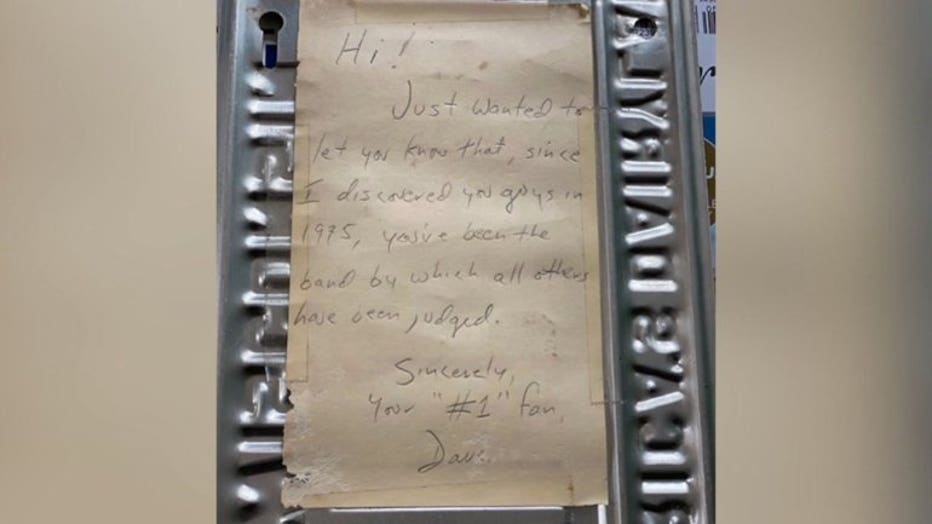 Hi!
Just wanted to
let you know that, since
I discovered you guys in
1975, you've been the
band by which all others
have been judged.
Sincerely,
Your "#1" fan,
Dave